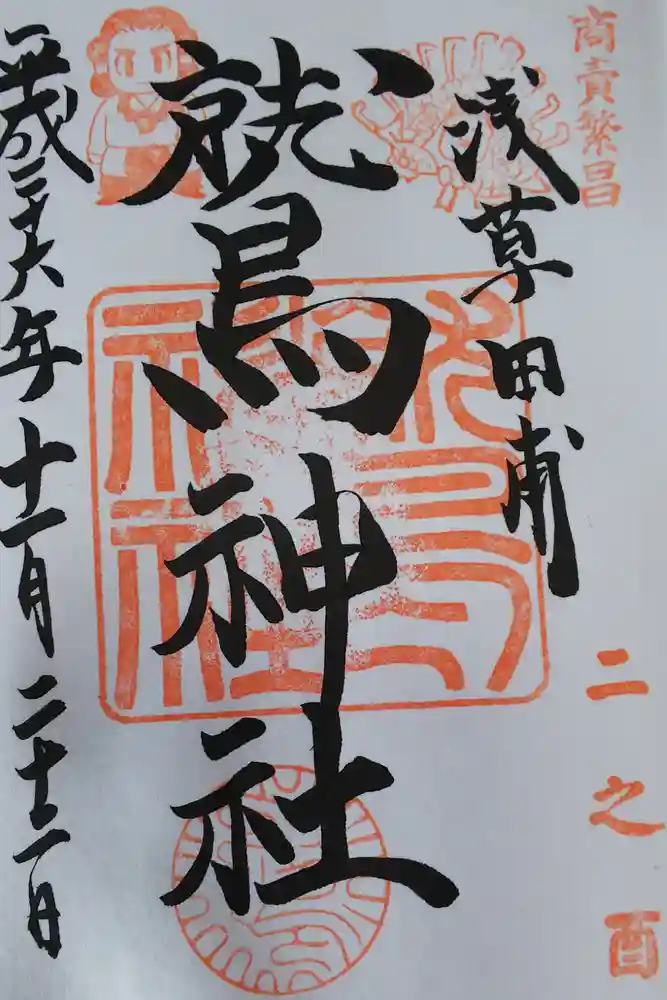 商賣繁昌
浅草田甫
二之酉
鷲神社
平成二十六年十一月二十二日